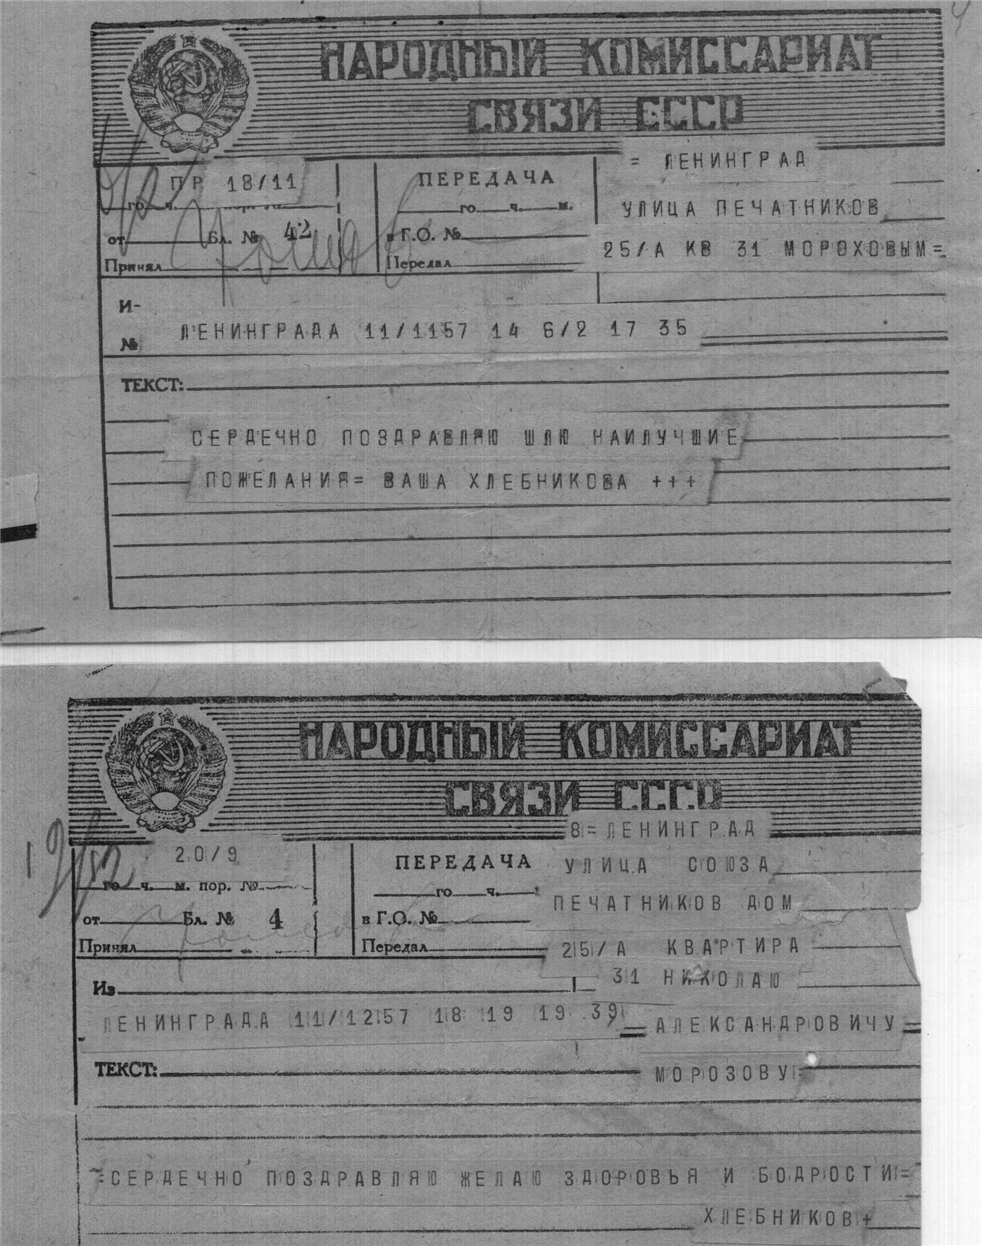 НАРОДНЫЙ КОМИССАРИАТ
СВЯЗИ СССР
ПР 18/11
го ч.
от Бл. № 42
Принял
ПЕРЕДАЧА
го ч. м.
в Г.О. №
Передал
= ЛЕНИНГРАД
УЛИЦА ПЕЧАТНИКОВ
25/А КВ 31 МОРОХОВЫМ=
И-
№
ЛЕНИНГРАДА 11/1157 14 6/2 17 35
ТЕКСТ:
СЕРДЕЧНО ПОЗДРАВЛЯЮ ШЛЮ НАИЛУЧШИЕ
ПОЖЕЛАНИЯ= ВАША ХЛЕБНИКОВА +++
НАРОДНЫЙ КОМИССАРИАТ
СВЯЗИ СССР
20/9
го ч. м. пор. №
от Бл. № 4
Принял
ПЕРЕДАЧА
го ч.
в Г.О. №
Передал
8=ЛЕНИНГРАД
УЛИЦА СОЮЗА
ПЕЧАТНИКОВ ДОМ
25/А КВАРТИРА
31 НИКОЛАЮ
АЛЕКСАНДРОВИЧУ
МОРОЗОВУ=
Из
ЛЕНИНГРАДА 11/1257 18 19 19 39
ТЕКСТ:
=СЕРДЕЧНО ПОЗДРАВЛЯЮ ЖЕЛАЮ ЗДОРОВЬЯ И БОДРОСТИ=
ХЛЕБНИКОВ+